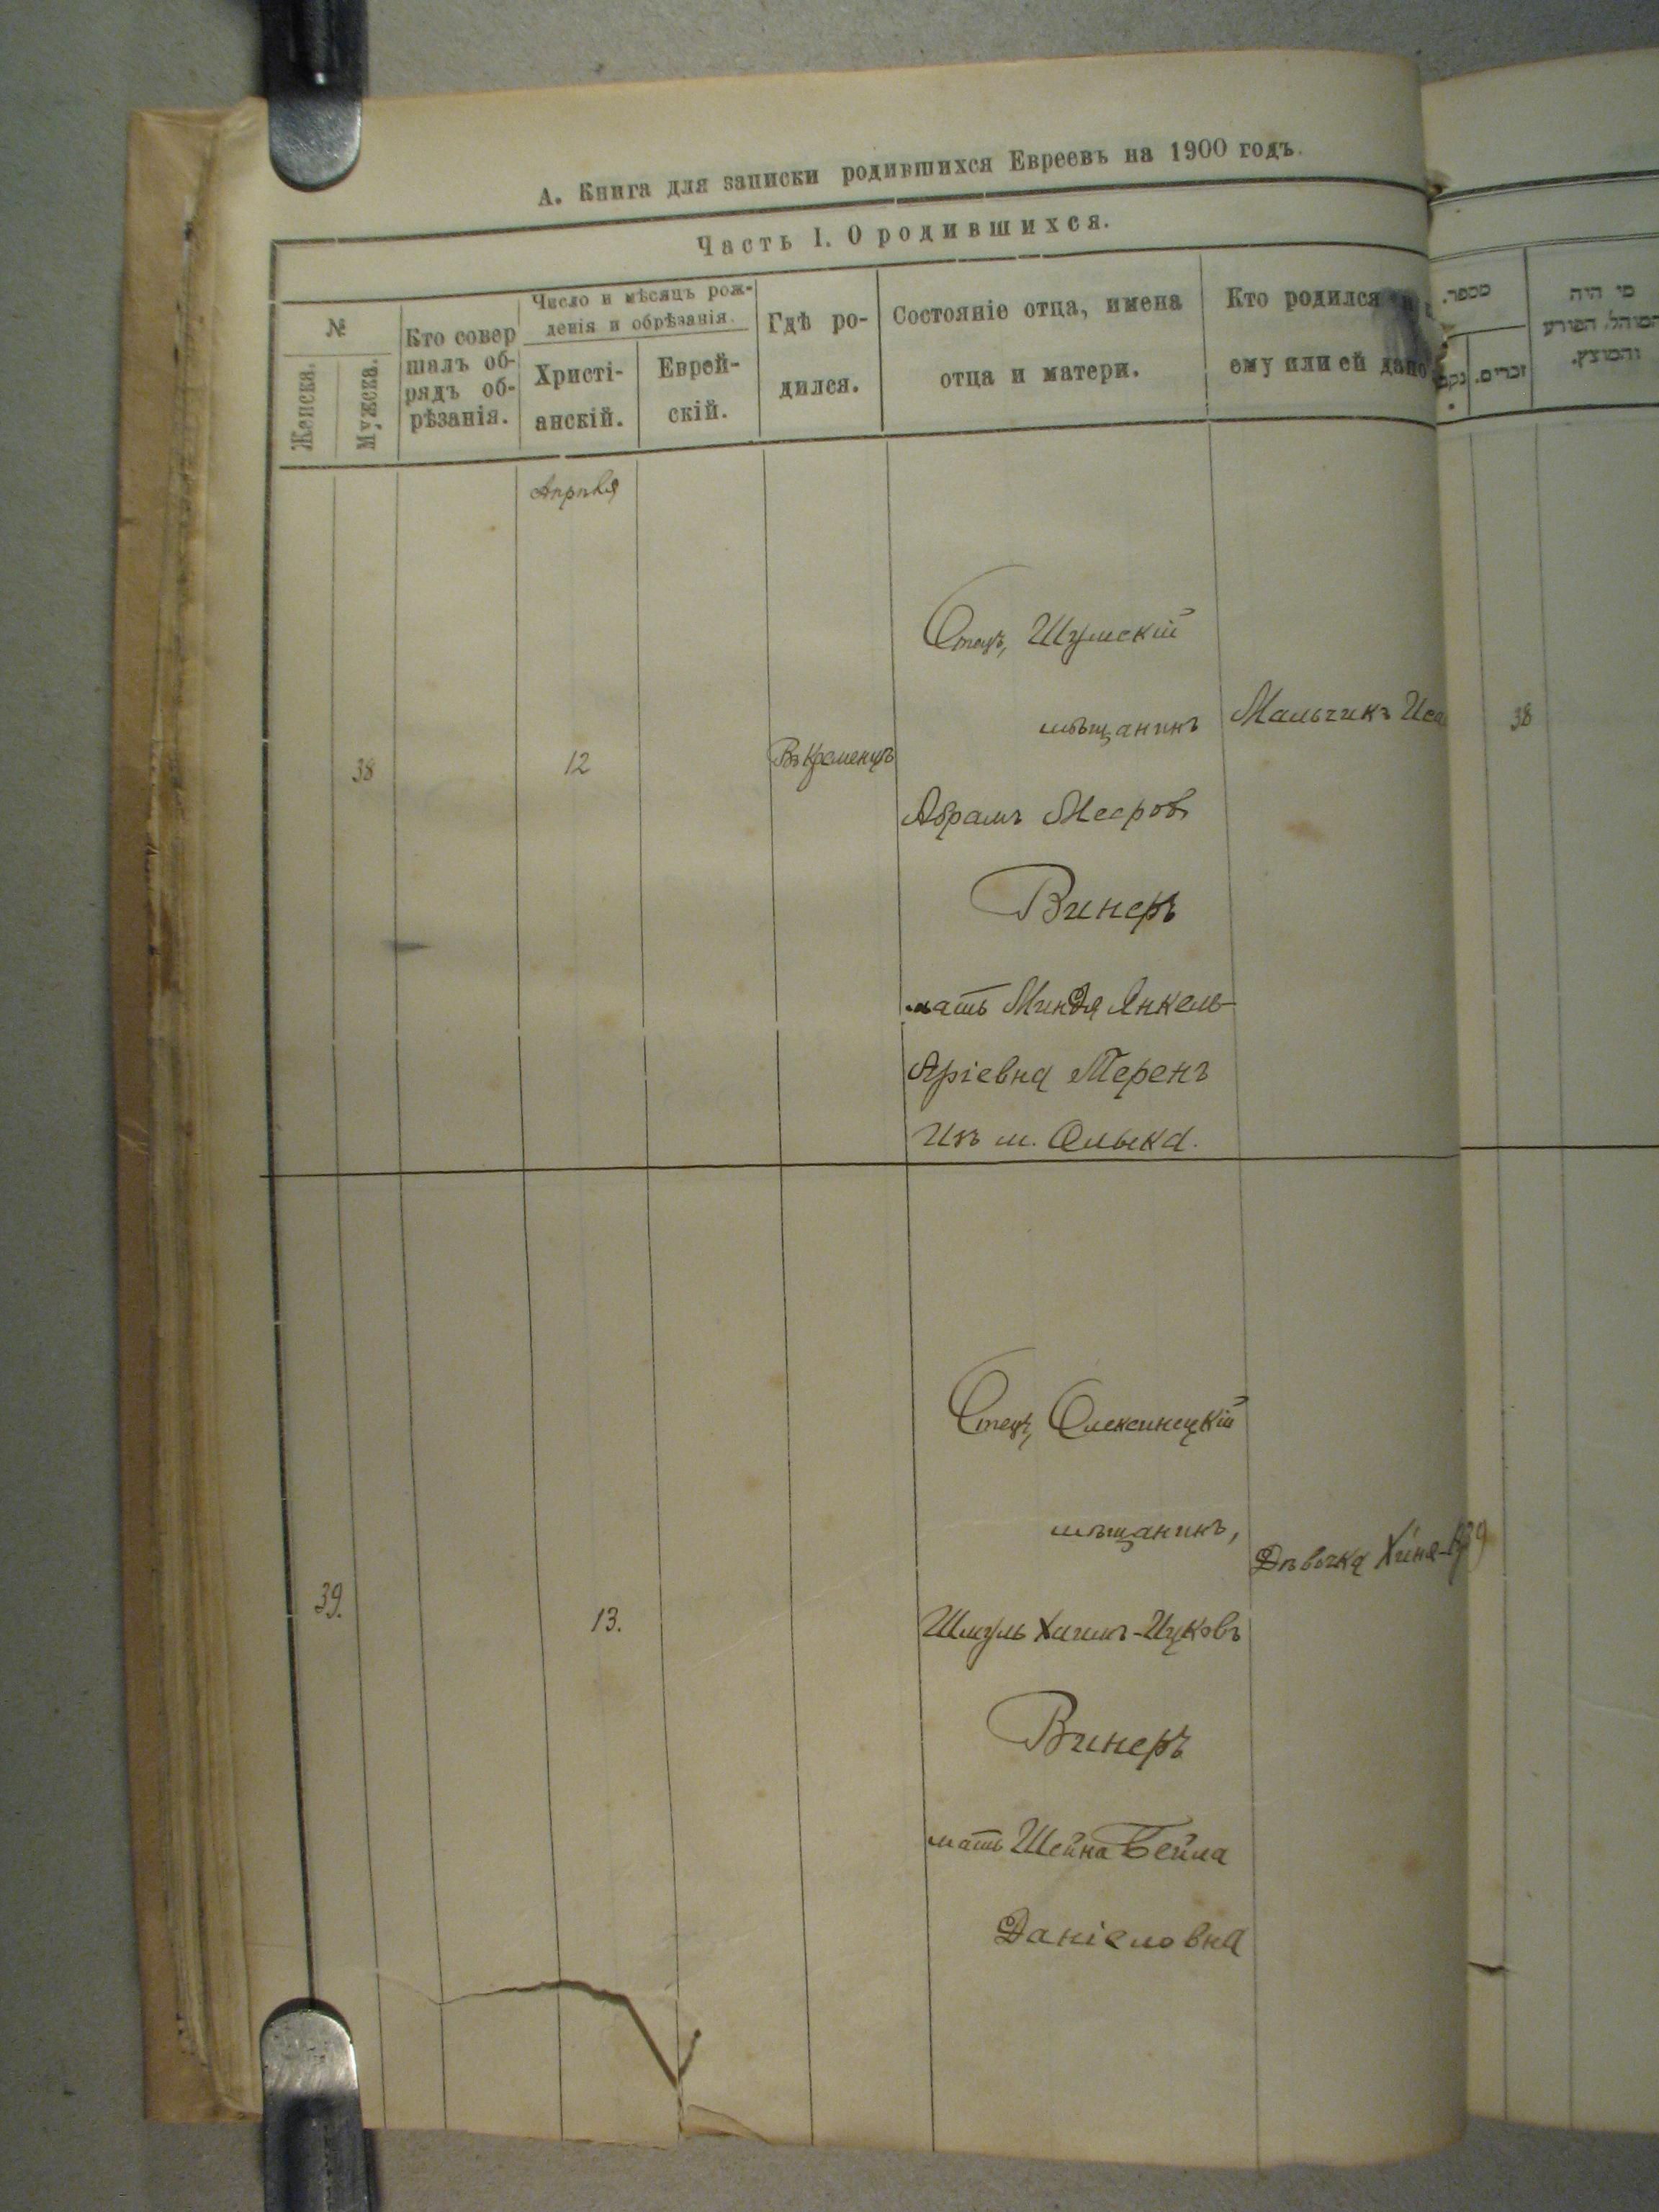 А. Книга для записки родившихся Евреевъ на 1900 годъ.
Часть I. О родившихся.
№
Женска.
Мужска.
Кто совер
шалъ об-
рядъ об-
рѣзанія.
Число и мѣсяцъ рож-
денія и обрѣзанія.
Христі-
анскій.
Еврей-
скій.
Гдѣ ро-
дился.
Состояніе отца, имена
отца и матери.
Кто родился
ему или ей дано
מספר.
זכרים.
מי היה
המוהל, הפורע
והמוצץ.
Апрѣля
38
12
Въ Кременцѣ
Отецъ, Шумскій
мѣщанинъ
Абрамъ Мееровъ
Винеръ
мать Миндя Янкель-
Аріевна Теренъ
Изъ м. Олыка.
Мальчикъ
38
39.
13.
Отецъ, Олексинецкій
мѣщанинъ,
Шмуль Хаимъ-Ицковъ
Винеръ
мать Шейна Бейла
Даніеловна
Дѣвочка